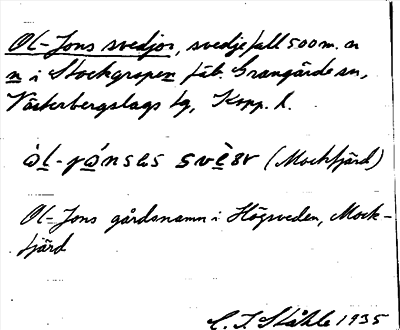 Ol-Jons svedjor, svedjefall 500 m. n
n i Stockgropen fäb. Grangärde sn,
Västerbergslags tg, Kopp. l.
òl-jónsas svèər (Mockfjärd)
Ol-Jons gårdsnamn i Högsveden, Mock-
fjärd
C. I. Ståhle 1935